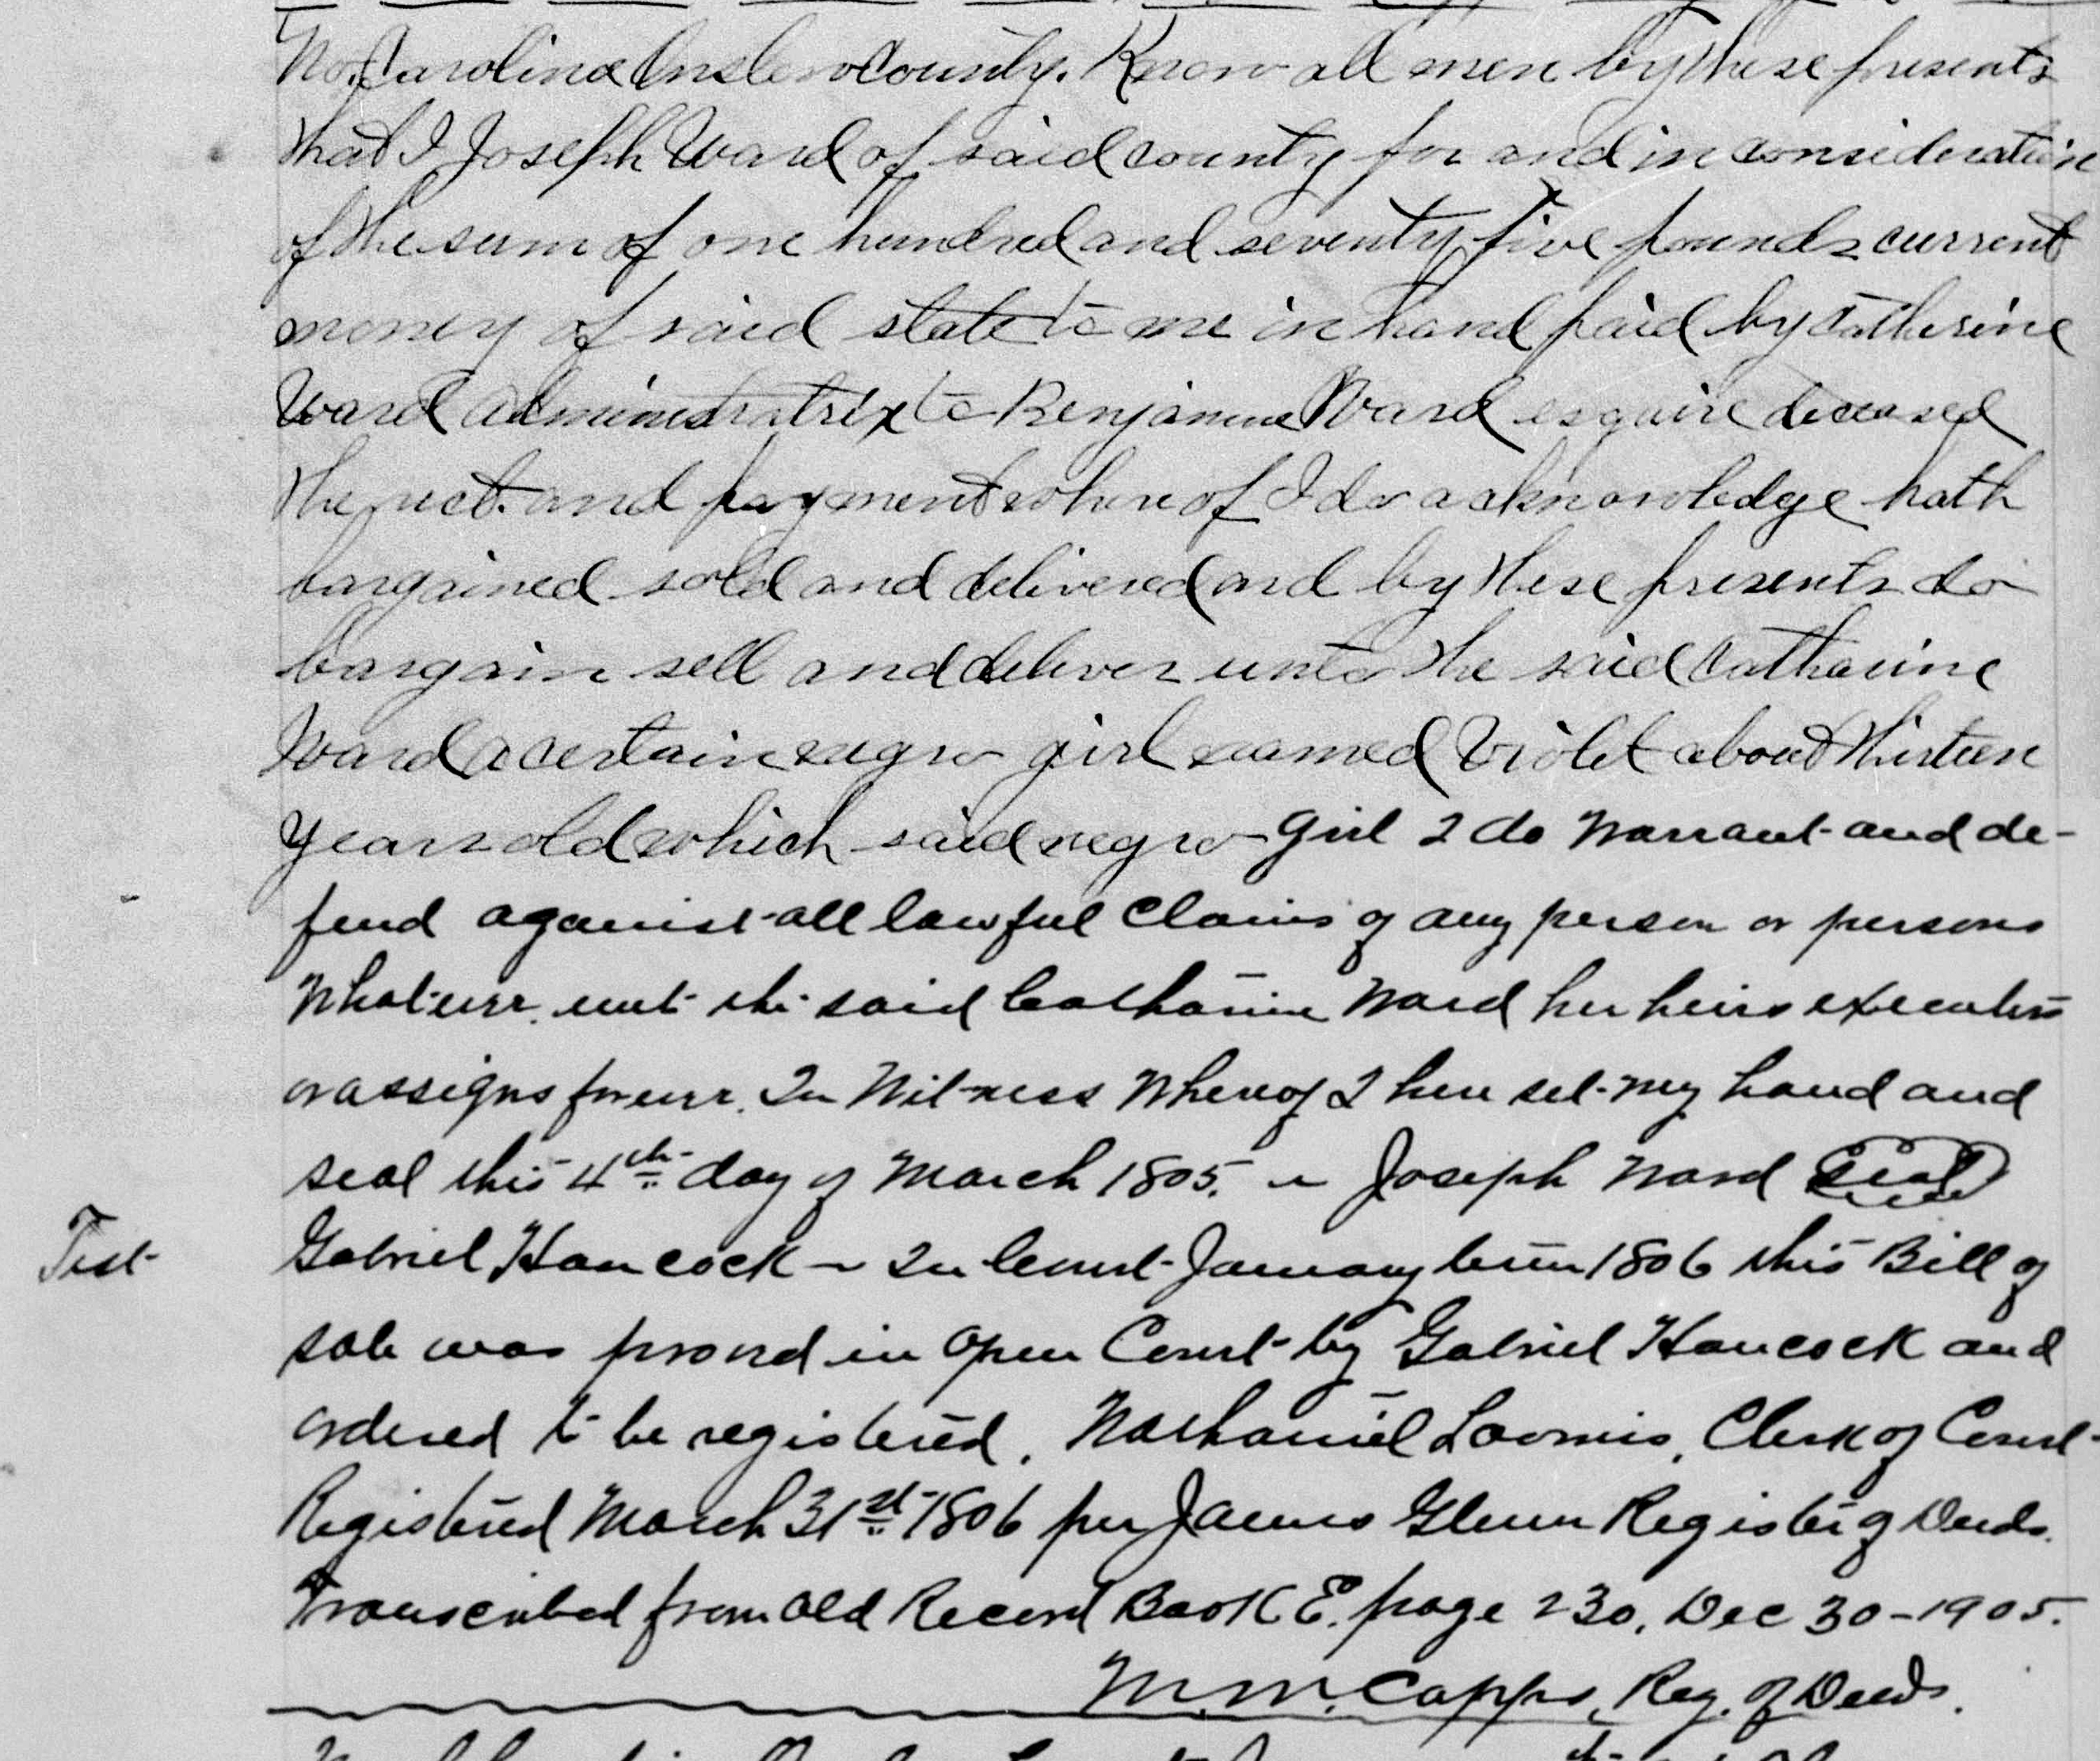 No. Carolina Onslow County. Know all men by these presents
that I Joseph Ward of said county for and in consideration
of the sum of one hundred and seventy five pounds current
money of said state to me in hand paid by Catherine
Ward administratrix to Benjamine Ward esquire deceased
the rect. and payment whereof I do acknowledge hath
bargained sold and delivered and by these presents do
bargain sell and deliver unto the said Catharine
Ward a certain negro girl named Violet about thirteen
years old which said negro girl I do warrant and de-
fend against all lawful claims of any person or persons
whatever, unt the said Catharine Ward her heirs executors
or assigns forever. In Witness Whereof I here set my hand and
seal this 4th day of March 1805. ~ Joseph Ward Seal
Test Gabriel Hancock ~ In Court January term 1806 this Bill of
sale was proved in open Court by Gabriel Hancock and
ordered to be registered. Nathaniel Loomis, Clerk of Court
Registered March 31st 1806 per James Glenn Register of Deeds.
Transcribed from old Record Book E. page 230, Dec 30-1905.
M.M. Capps, Reg. of Deeds.